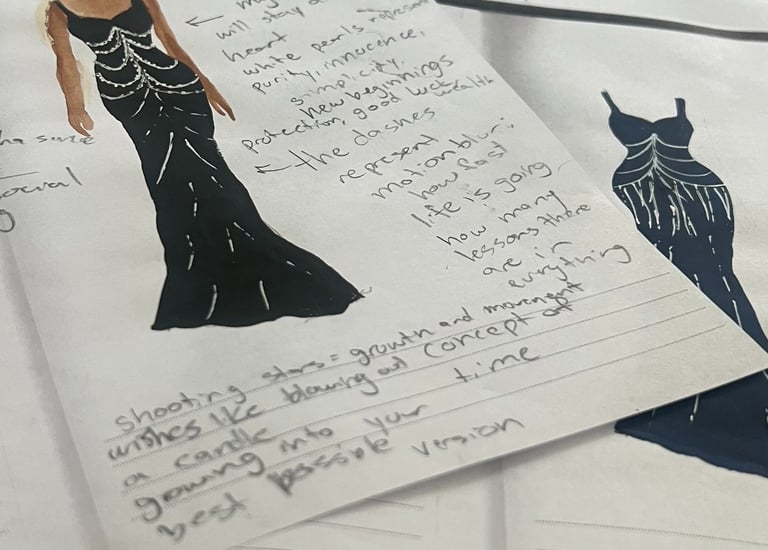 will stay
heart
white pearls represent
purity, innocence,
simplicity,
new beginnings
protection, good luck wealth
the dashes
represent
motion blur:
how fast
life is going
how many
lessons there
are in
everything
shooting stars = growth and movement
wishes like blowing out concept of
a candle time
growing into your
best possible version